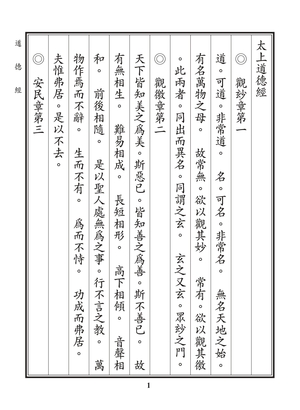 太上道德經
◎　觀玅章第一
道。可道。非常道。　名。可名。非常名。　無名天地之始。
有名萬物之母。　故常無。欲以觀其妙。　常有。欲以觀其徼
。此兩者。同出而異名。同謂之玄。　玄之又玄。眾玅之門。
◎　觀徼章第二
天下皆知美之為美。斯惡已。皆知善之為善。斯不善已。　故
有無相生。　難易相成。　長短相形。　高下相傾。　音聲相
和。　前後相隨。　是以聖人處無為之事。行不言之教。　萬
物作焉而不辭。　生而不有。　為而不恃。　功成而弗居。
夫惟弗居。是以不去。
◎　安民章第三
道德經
1